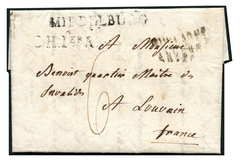 MIDDELBURG
A Monsieur
Benoit quartier Maitre des
Invalides
6
A Louvain
France